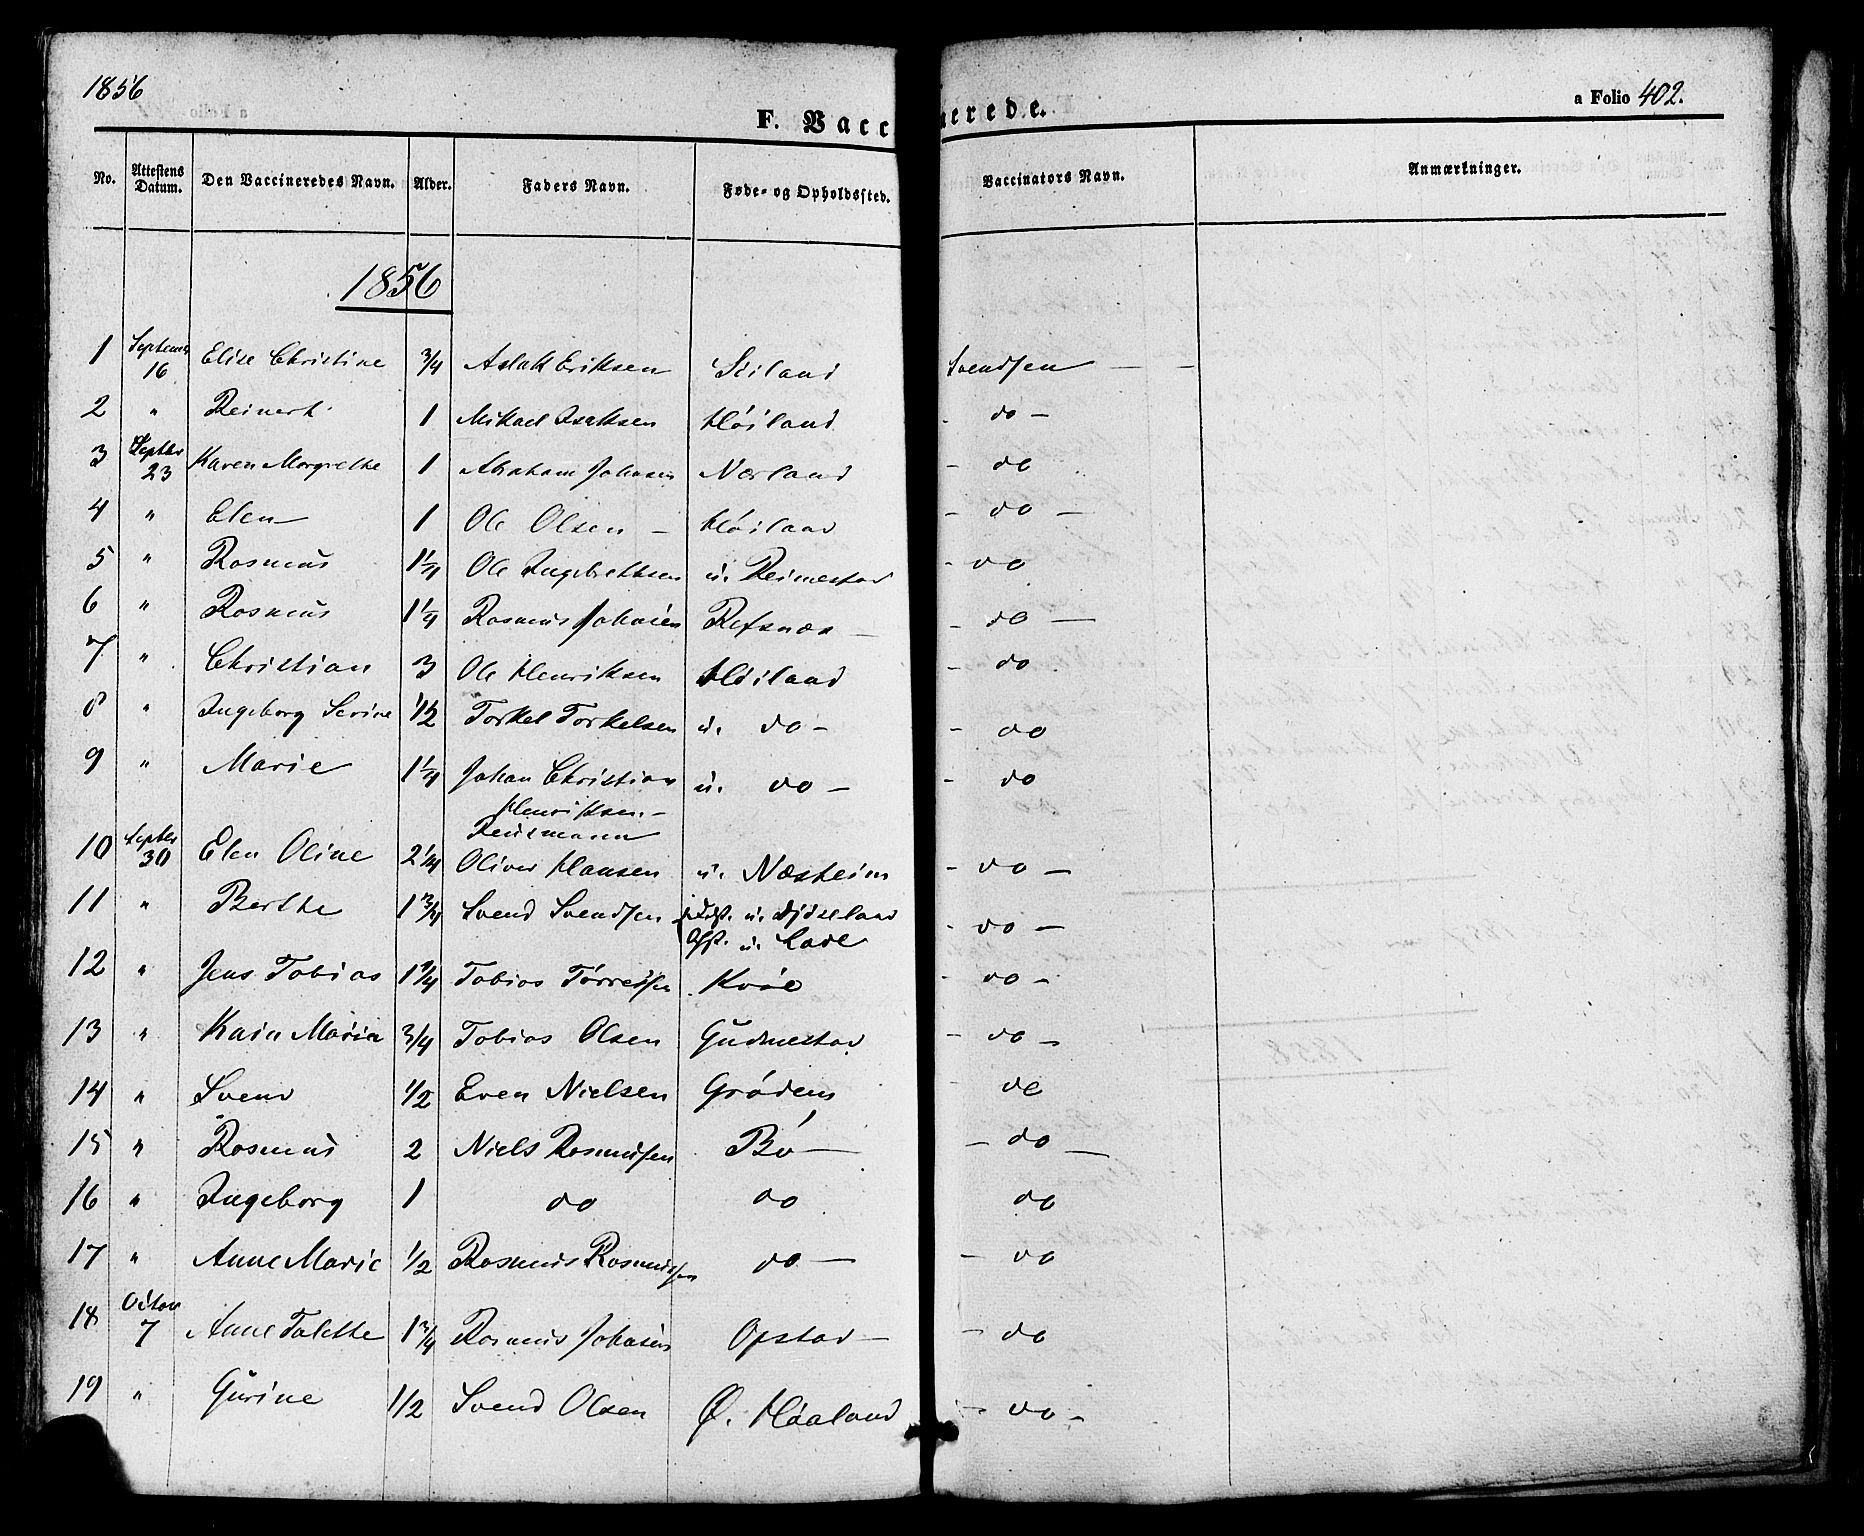 1856
a Folio 402.
F. Vaccinerede.
No. Attestens Datum. Den Vaccineredes Navn. Alder. Faders Navn. Føde- og Opholdssted. Vaccinators Navn. Anmærkninger.
1856
1 Septem 16 Elise Christine 3/4 Aslak Eriksen Svendsen
2 " Reinert 1 Mikael Isaksen Høiland do
3 Septbr 23 Karen Margrethe 1 Abraham Johnsen Nærland do
4 " Elen 1 Ole Olsen Høiland do
5 " Rasmus 1 1/4 Ole Ingebretsen u. Reimestad do
6 " Rasmus 1 1/4 Rasmus Johnsen Refsnæs do
7 " Christian 3 Ole Henriksen Høiland do
8 " Ingeborg Serine 1 1/2 Torkel Torkelsen u. do do
9 " Marie 1 1/4 Johan Christian u. do do
Henriksen
10 Septbr 30 Elen Oline 2 1/4 Oliver Hansen u. Næsheim do
11 " Berthe 1 3/4 Svend Svendsen do
12 " Jens Tobias Tobias Tørresen Kvie do
13 " 3/4 Tobias Olsen Gudmestad do
14 " Svend 1/2 Even Nielsen Grødem do
15 " Rasmus 2 Niels Rasmusen Bø do
16 " Ingeborg 1 do do do
17 " Anne Marie 1/2 Rasmus Rasmussen do do
18 7 Anne Talette 1 3/4 Rasmus Johnsen Opstad do
19 " Gurine 1/2 Svend Olsen Ø. Haaland do